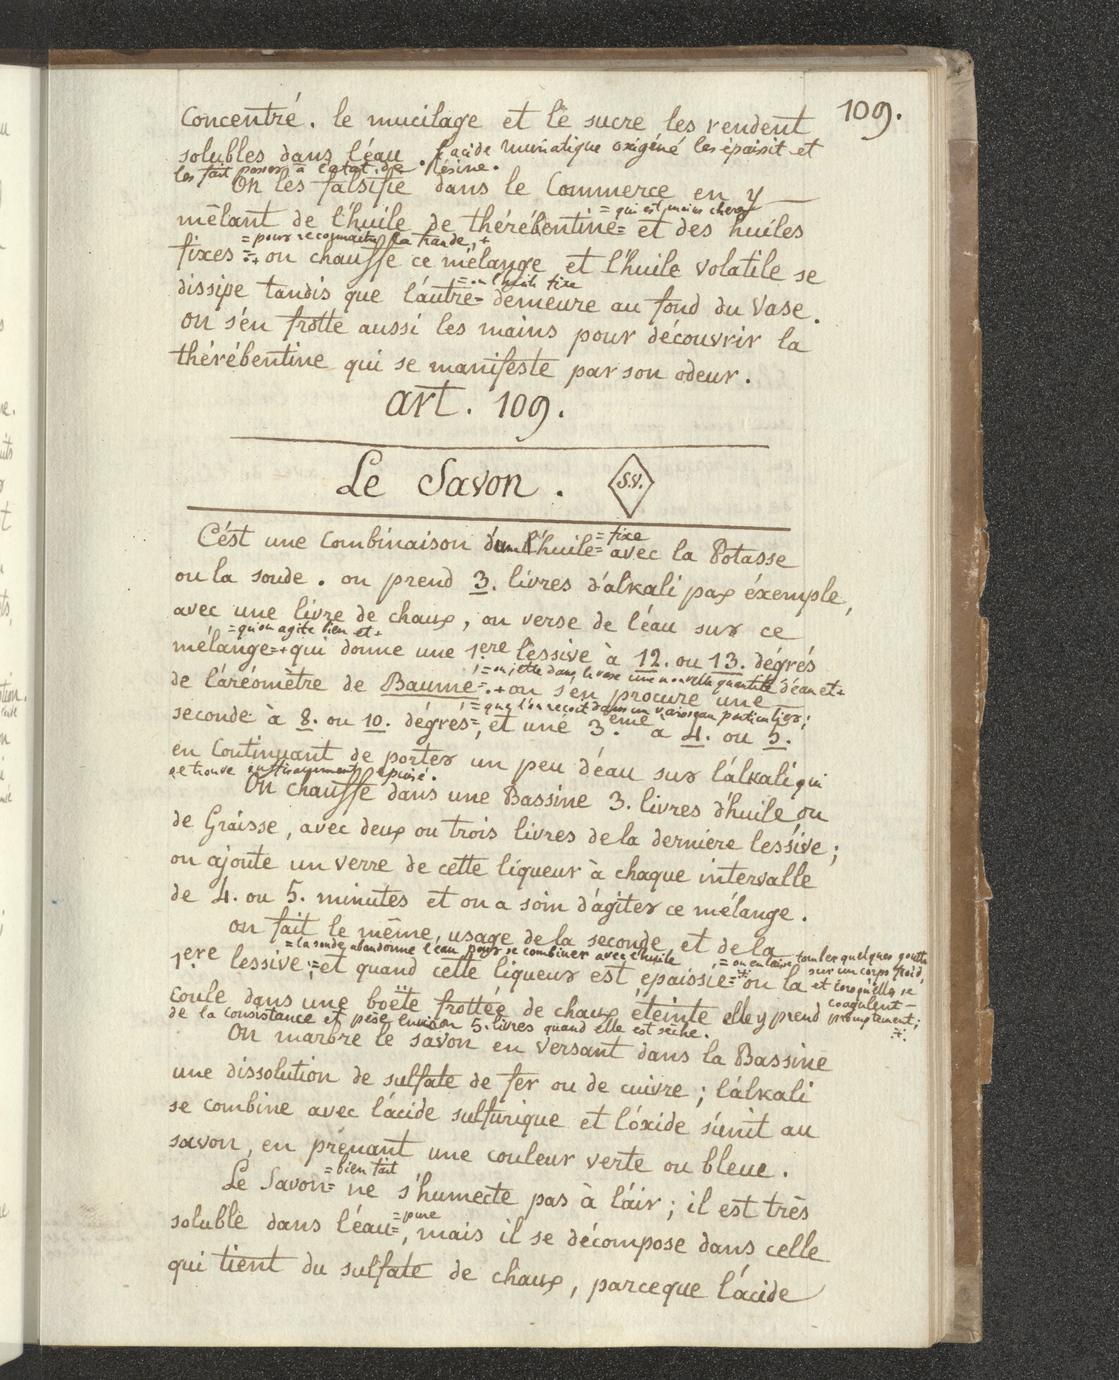 109.
Concentré. le mucilage et le sucre les rendent
solubles dans l'éau. l'acide muriatique oxigéné les épaissit et
les fait passer à l'état de Résine.
On les falsifie dans le Commerce en y
= qui est moins chere
mêlant de l'huile de thérébentine= et des huiles
= pour reconnaitre la fraude, +
fixes =.+ on chauffe ce mélange et l'huile volatile se
= ou l'huile fixe
dissipe tandis que l'áutre= demeure au fond du Vase.
on s'én frotte aussi les mains pour découvrir la
thérébentine qui se manifeste par son odeur.
art. 109.
Le Savon. S.V.
= fixe
C'ést une Combinaison de l'huile= avec la Potasse
ou la soude. on prend 3. livres d'alkali par éxemple,
avec une livre de chaux, on verse de l'éau sur ce
= qu'on agite bien et +
mélange=+ qui donne une 1ere lessive à 12. ou 13. dégrés
= on jette dans le vase une nouvelle quantité d'éau et +
de l'áréomètre de Baume=.+ on s'én procure une
= que l'on reçoit dans un vaisseau particulier;
seconde à 8. ou 10. dégrés=, et une 3.eme à 4. ou 5.
en Continuant de porter un peu d'éau sur l'álkali qui
se trouve entierement épuisé.
On chauffe dans une Bassine 3. livres d'huile ou
de Graisse, avec deux ou trois livres de la derniere lessive;
on ajoute un verre de cette liqueur à chaque intervalle
de 4. ou 5. minutes et on a soin d'ágiter ce mélange.
on fait le même usage de la seconde et de la
= la soude abandonne l'éau pour se combiner avec l'huile
= on en laisse tomber quelques goutes
sur un corps froid,
et lorsqu'elles se
coagulent
promptement;
1ere lessive;= et quand cette liqueur est epaissie= on la
coule dans une boëte frottée de chaux éteinte elle y prend
de la consistance et pese environ 5. livres quand elle est seche.
On marbre le savon en versant dans la Bassine
une dissolution de sulfate de fer ou de cuivre; l'álkali
se combine avec l'ácide sulfurique et l'óxide s'únit au
savon, en prenant une couleur verte ou bleue.
= bien fait
Le Savon= ne s'humecte pas à l'áir; il est très
= pure
soluble dans l'éau=, mais il se décompose dans celle
qui tient du sulfate de chaux, parceque l'ácide